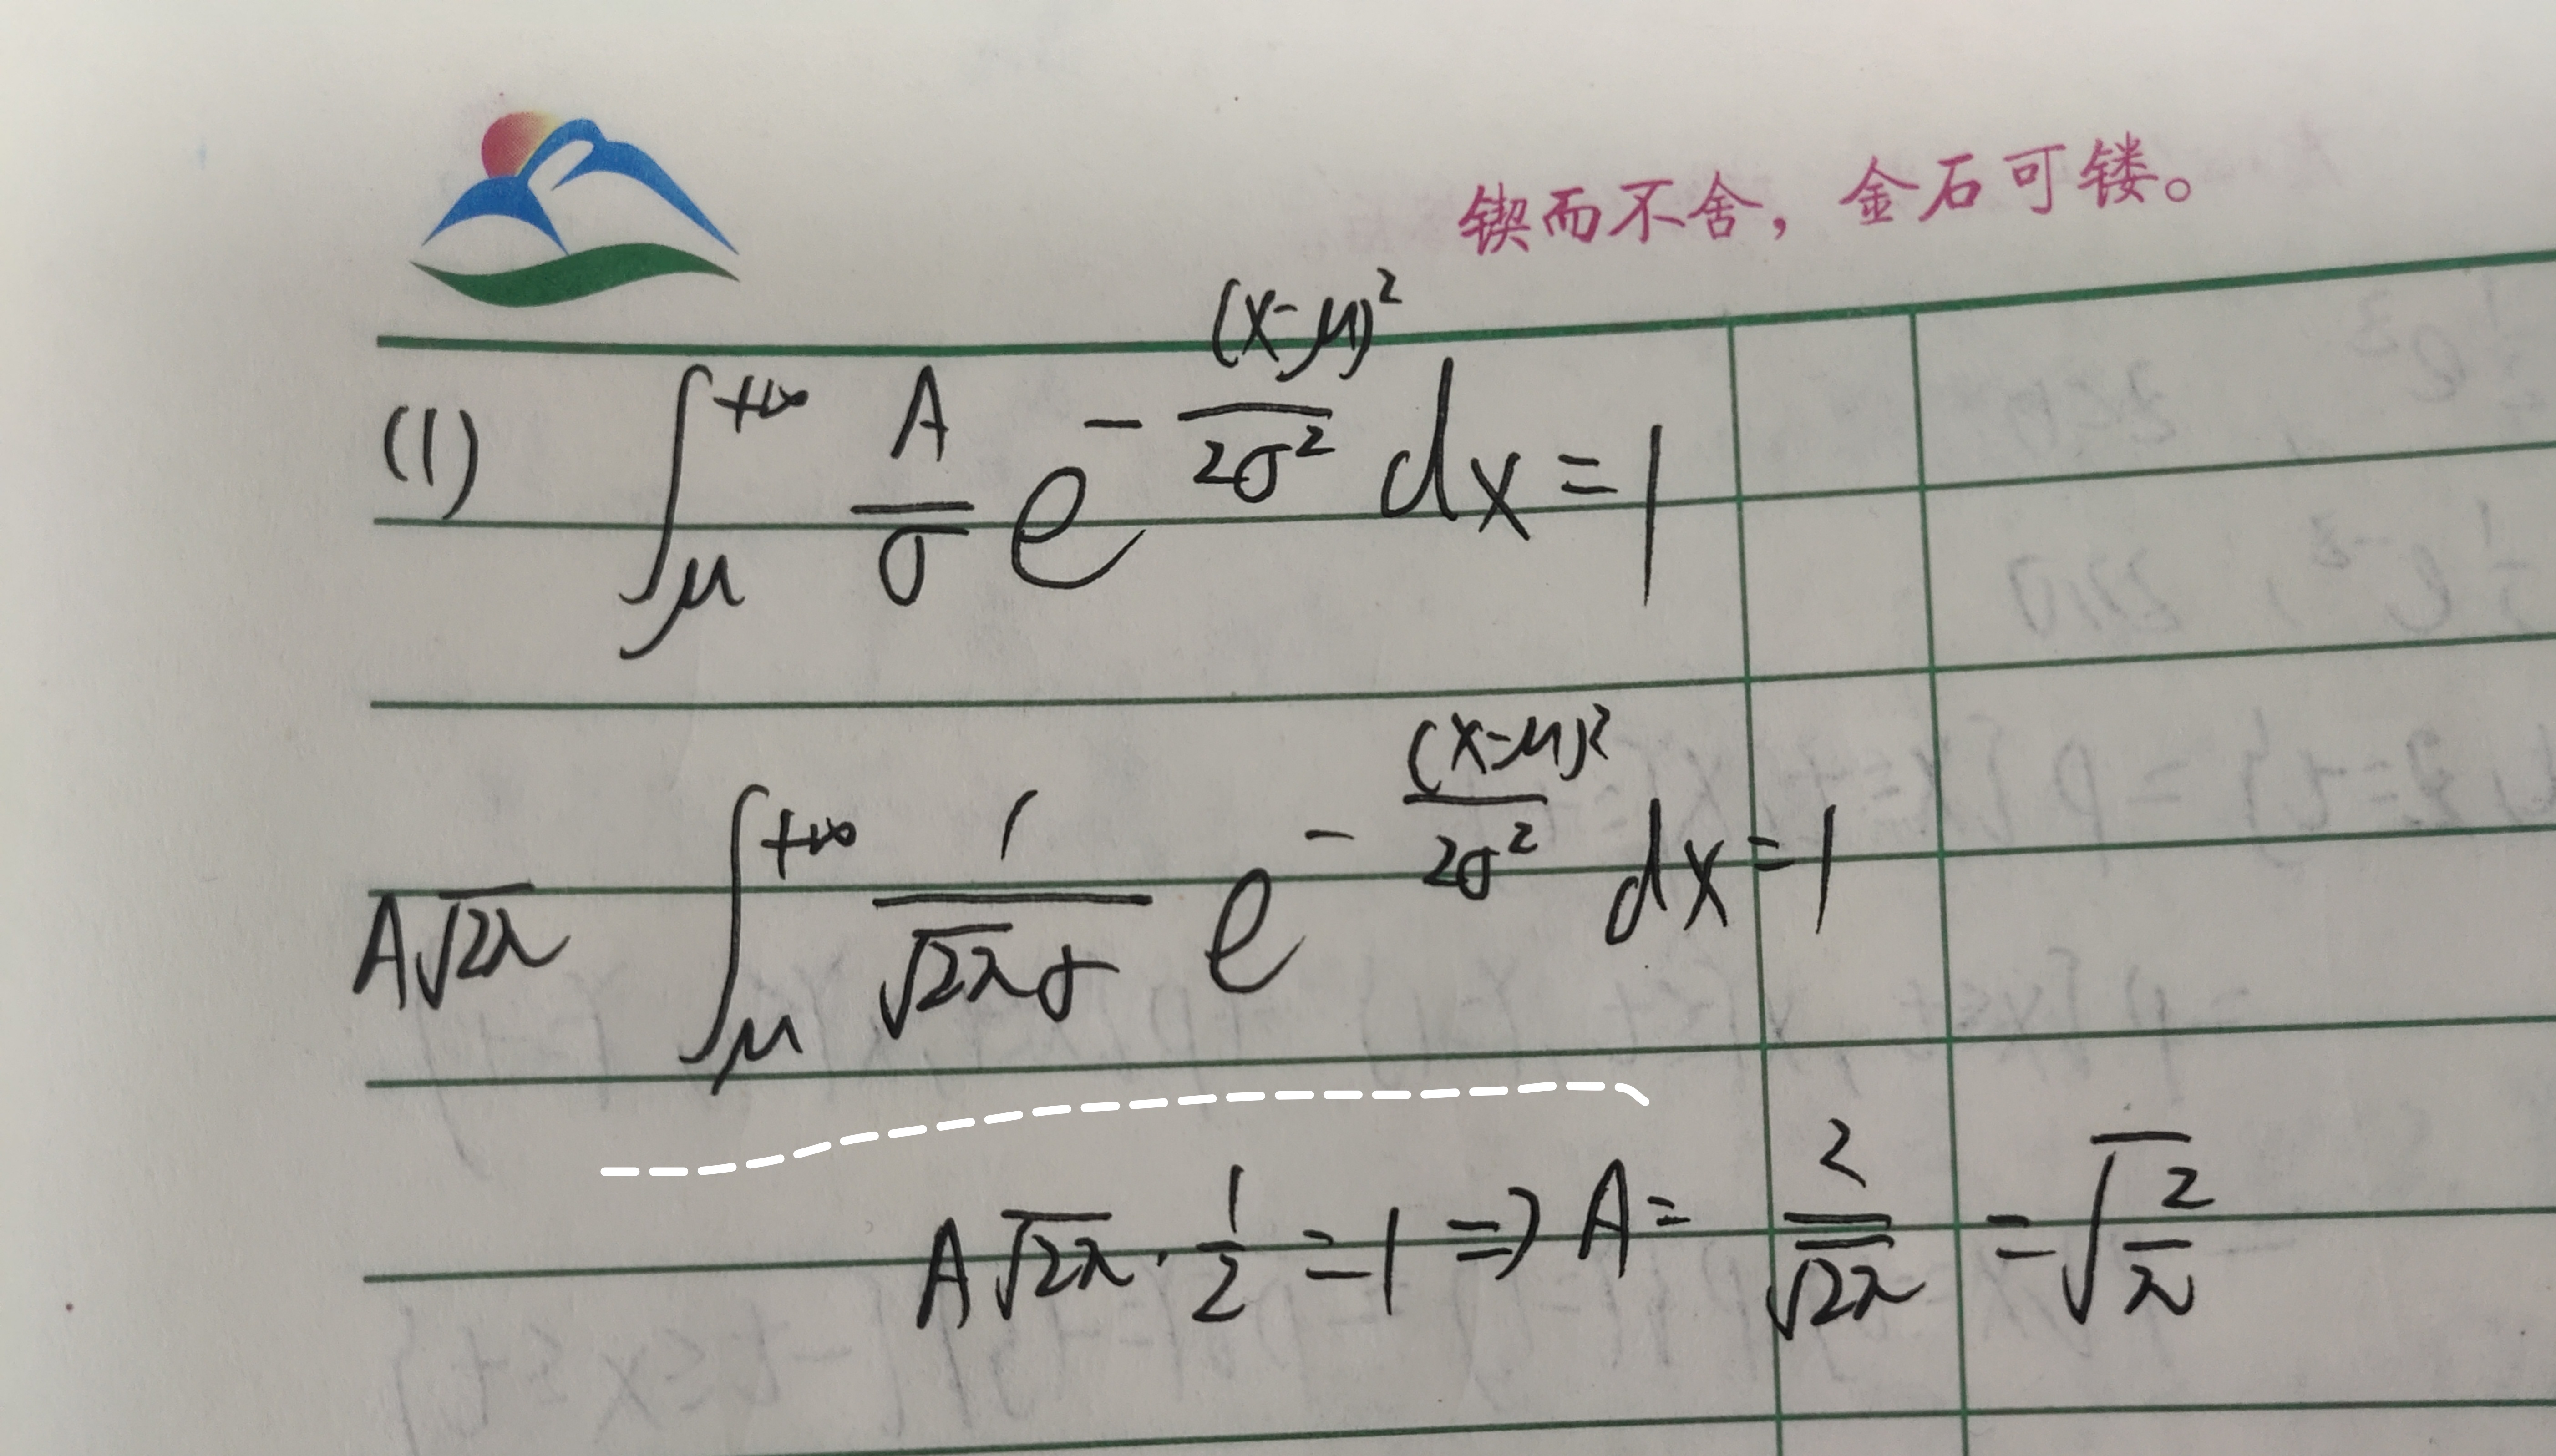 锲而不舍，金石可镂。
(1) ∫_μ^{+∞} \frac{A}{σ} e^{-\frac{(x-μ)^2}{2σ^2}} dx = 1
A√(2π) ∫_μ^{+∞} \frac{1}{√(2π)σ} e^{-\frac{(x-μ)^2}{2σ^2}} dx = 1
A√(2π) · \frac{1}{2} = 1 ⇒ A = \frac{2}{√(2π)} = √(\frac{2}{π})